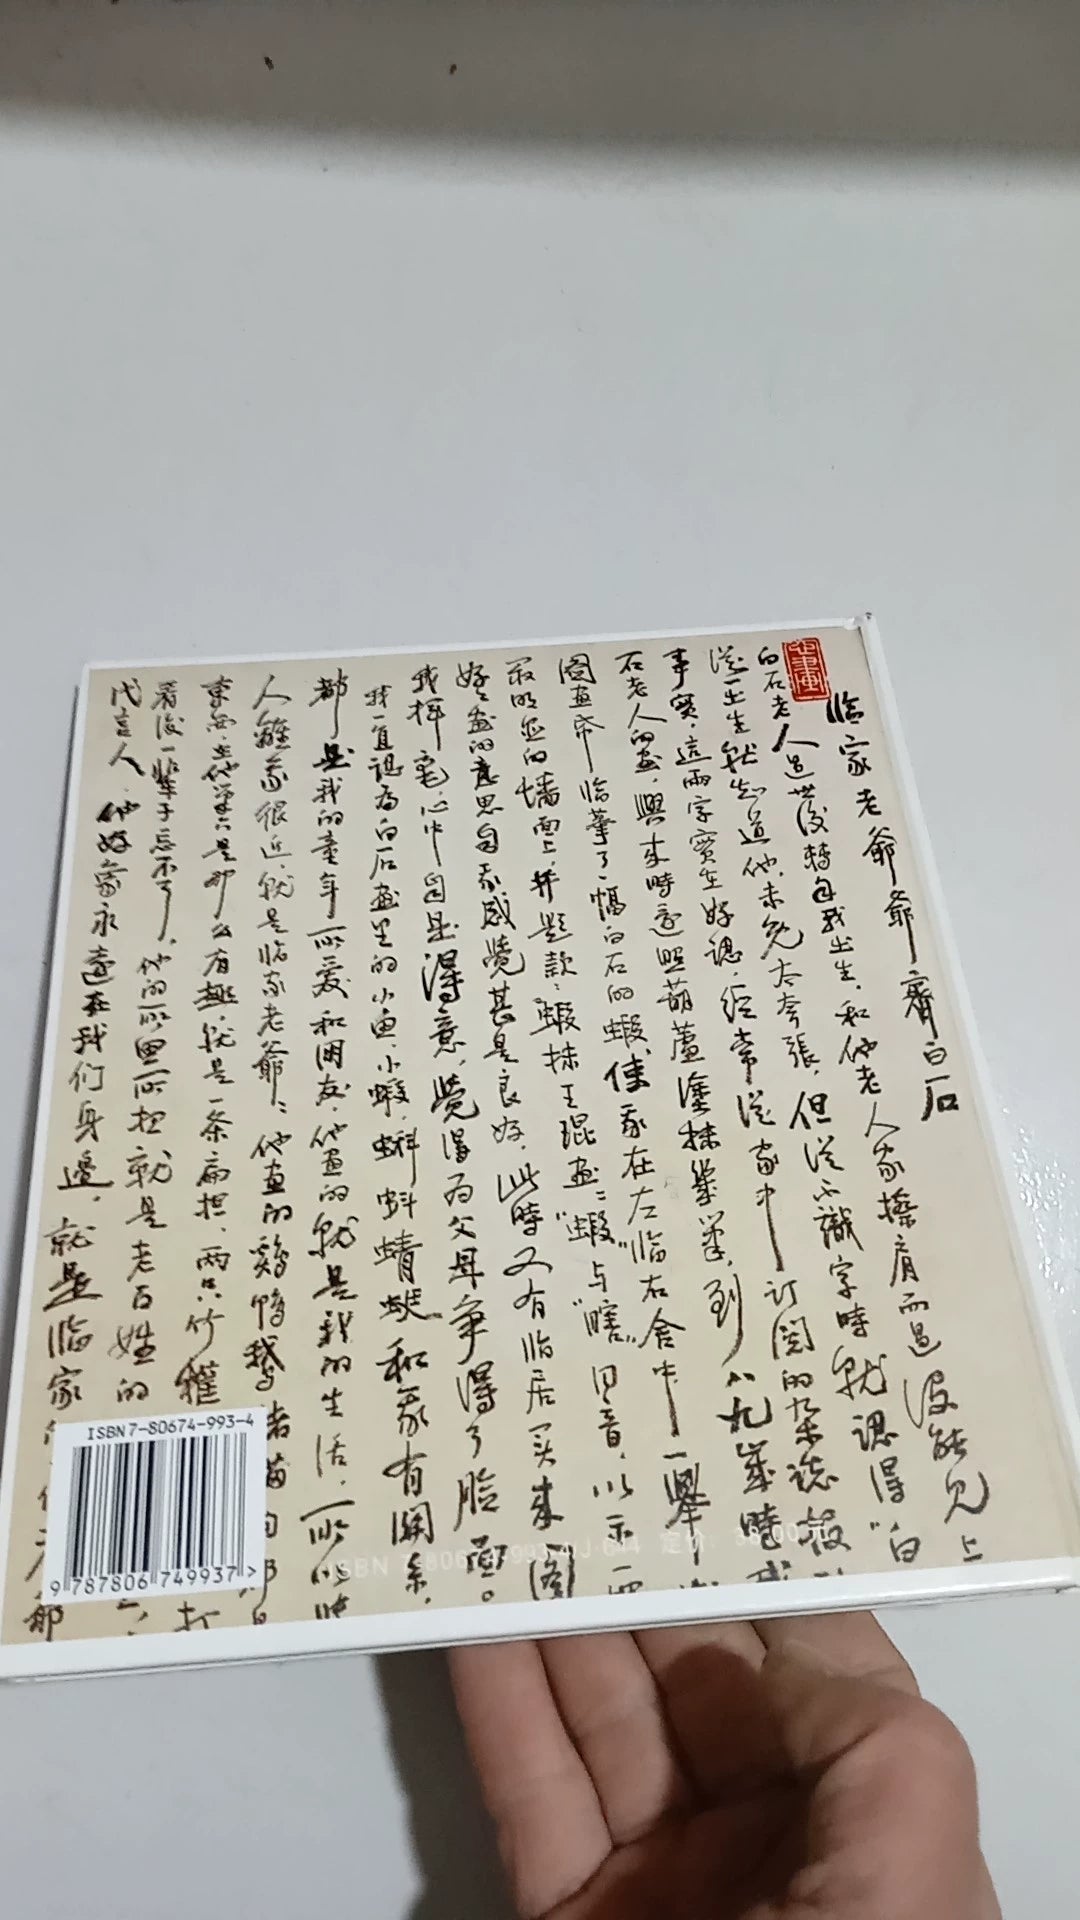 临家老爺爺齊白石
白石老人過世後轉自我出生,和他老人家擦肩而過没能見上
從一出生就知道他,未免太夸張,但從不識字時就認得"白
事實,這兩字實在好認,经常從家中订閱的杂誌報
石老人的画,興來時逐照葫蘆塗抹幾筆,到八九歲時我
图画希临摹了一幅白石的蝦,使我在左"临右舍中一舉
最明显的墙面上,并题款:蝦抹王琨画:"蝦与"瞎"同音,以示一
好之画的意思自我感覺甚是良好,此時又有临居买来图
我挥毫,心中自是得意,覺得為父母争得了脸面。
我一直認為白石画里的小鱼、小蝦、蝌蚪蜻蜓和我有関系,
都是我的童年所爱和朋友,他画的就是我的生活,所以
人離我很近,就是临家老爺,他画的鷄鸭鹅猪猫
東西在他筆下是那么有趣,就是一条扁担、两只竹
看後一輩子忘不了,他的所思所想就是老百姓的
代言人,他好象永遠在我们身邊,就是临家
ISBN 7-80674-993-4
9 787806 749937 >
ISBN 7-80674-993-4/J·644 定价: 38.00元